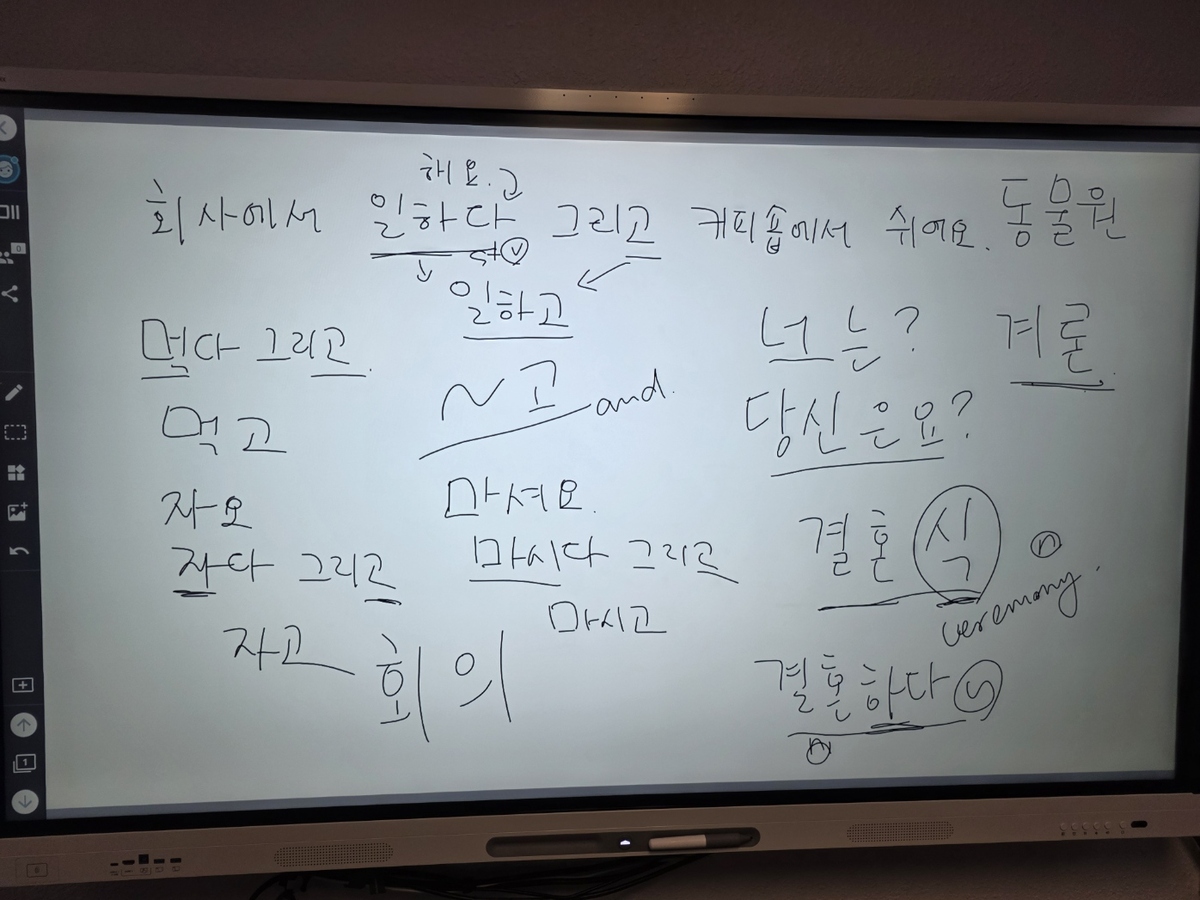 해요. 고
회사에서 일하다 그리고 커피숍에서 쉬어요. 동물원
St ⓥ
일하고
먹다 그리고.
너는? 계론.
먹고
~고 and.
당신은요?
자요
마셔요.
결혼식 ⓝ
ceremony.
자다 그리고
마시다 그리고
자고
마시고
회의
결혼하다 ⓥ
ⓝ